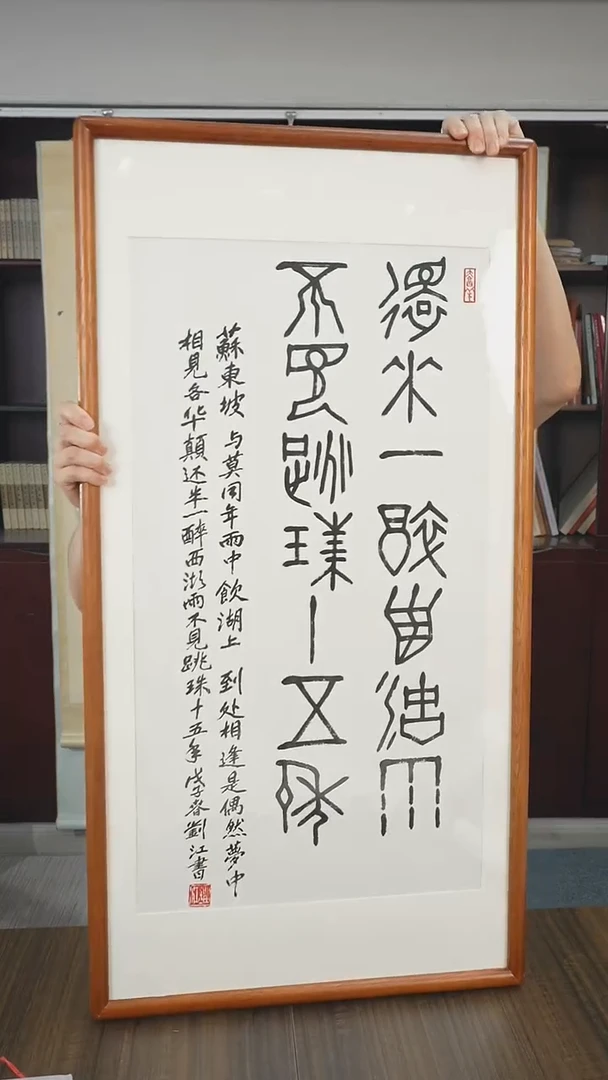 還來一醉西湖雨
不見跳珠十五年
蘇東坡 与莫同年雨中飲湖上 到处相逢是偶然夢中
相見各华顛还来一醉西湖雨不見跳珠十五年 戊子春劉江書